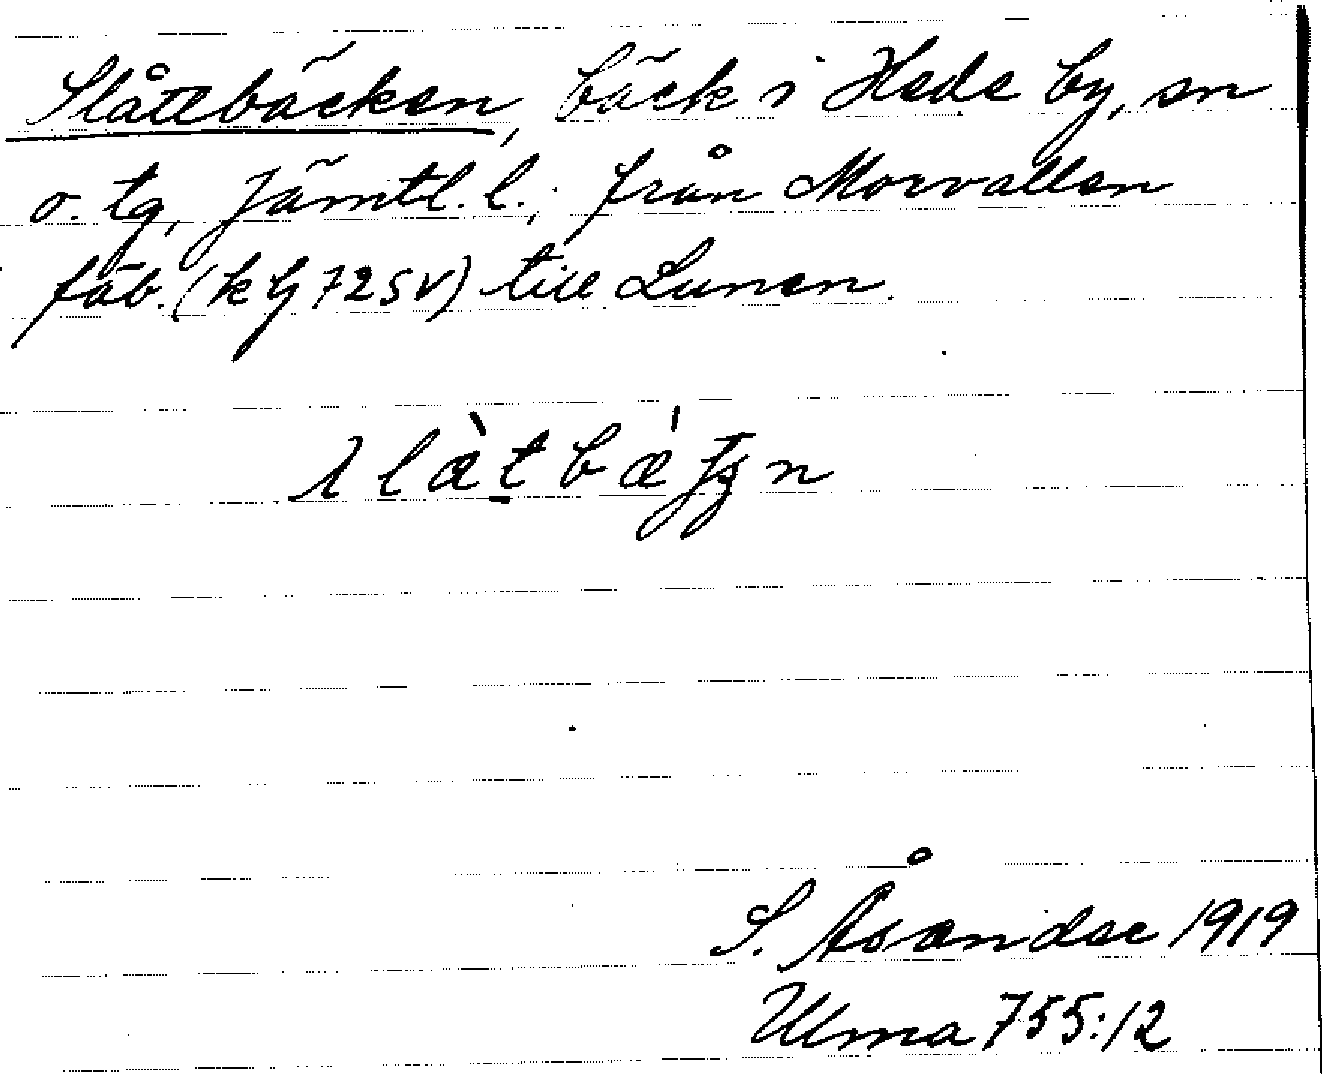 Slåtebäcken, bäck i Hede by, sn
o. tg, Jämtl. l.; från Morvallen
fäb. (kg 72 SV) till Lunen.
S. Åsander 1919
Ulma 755:12